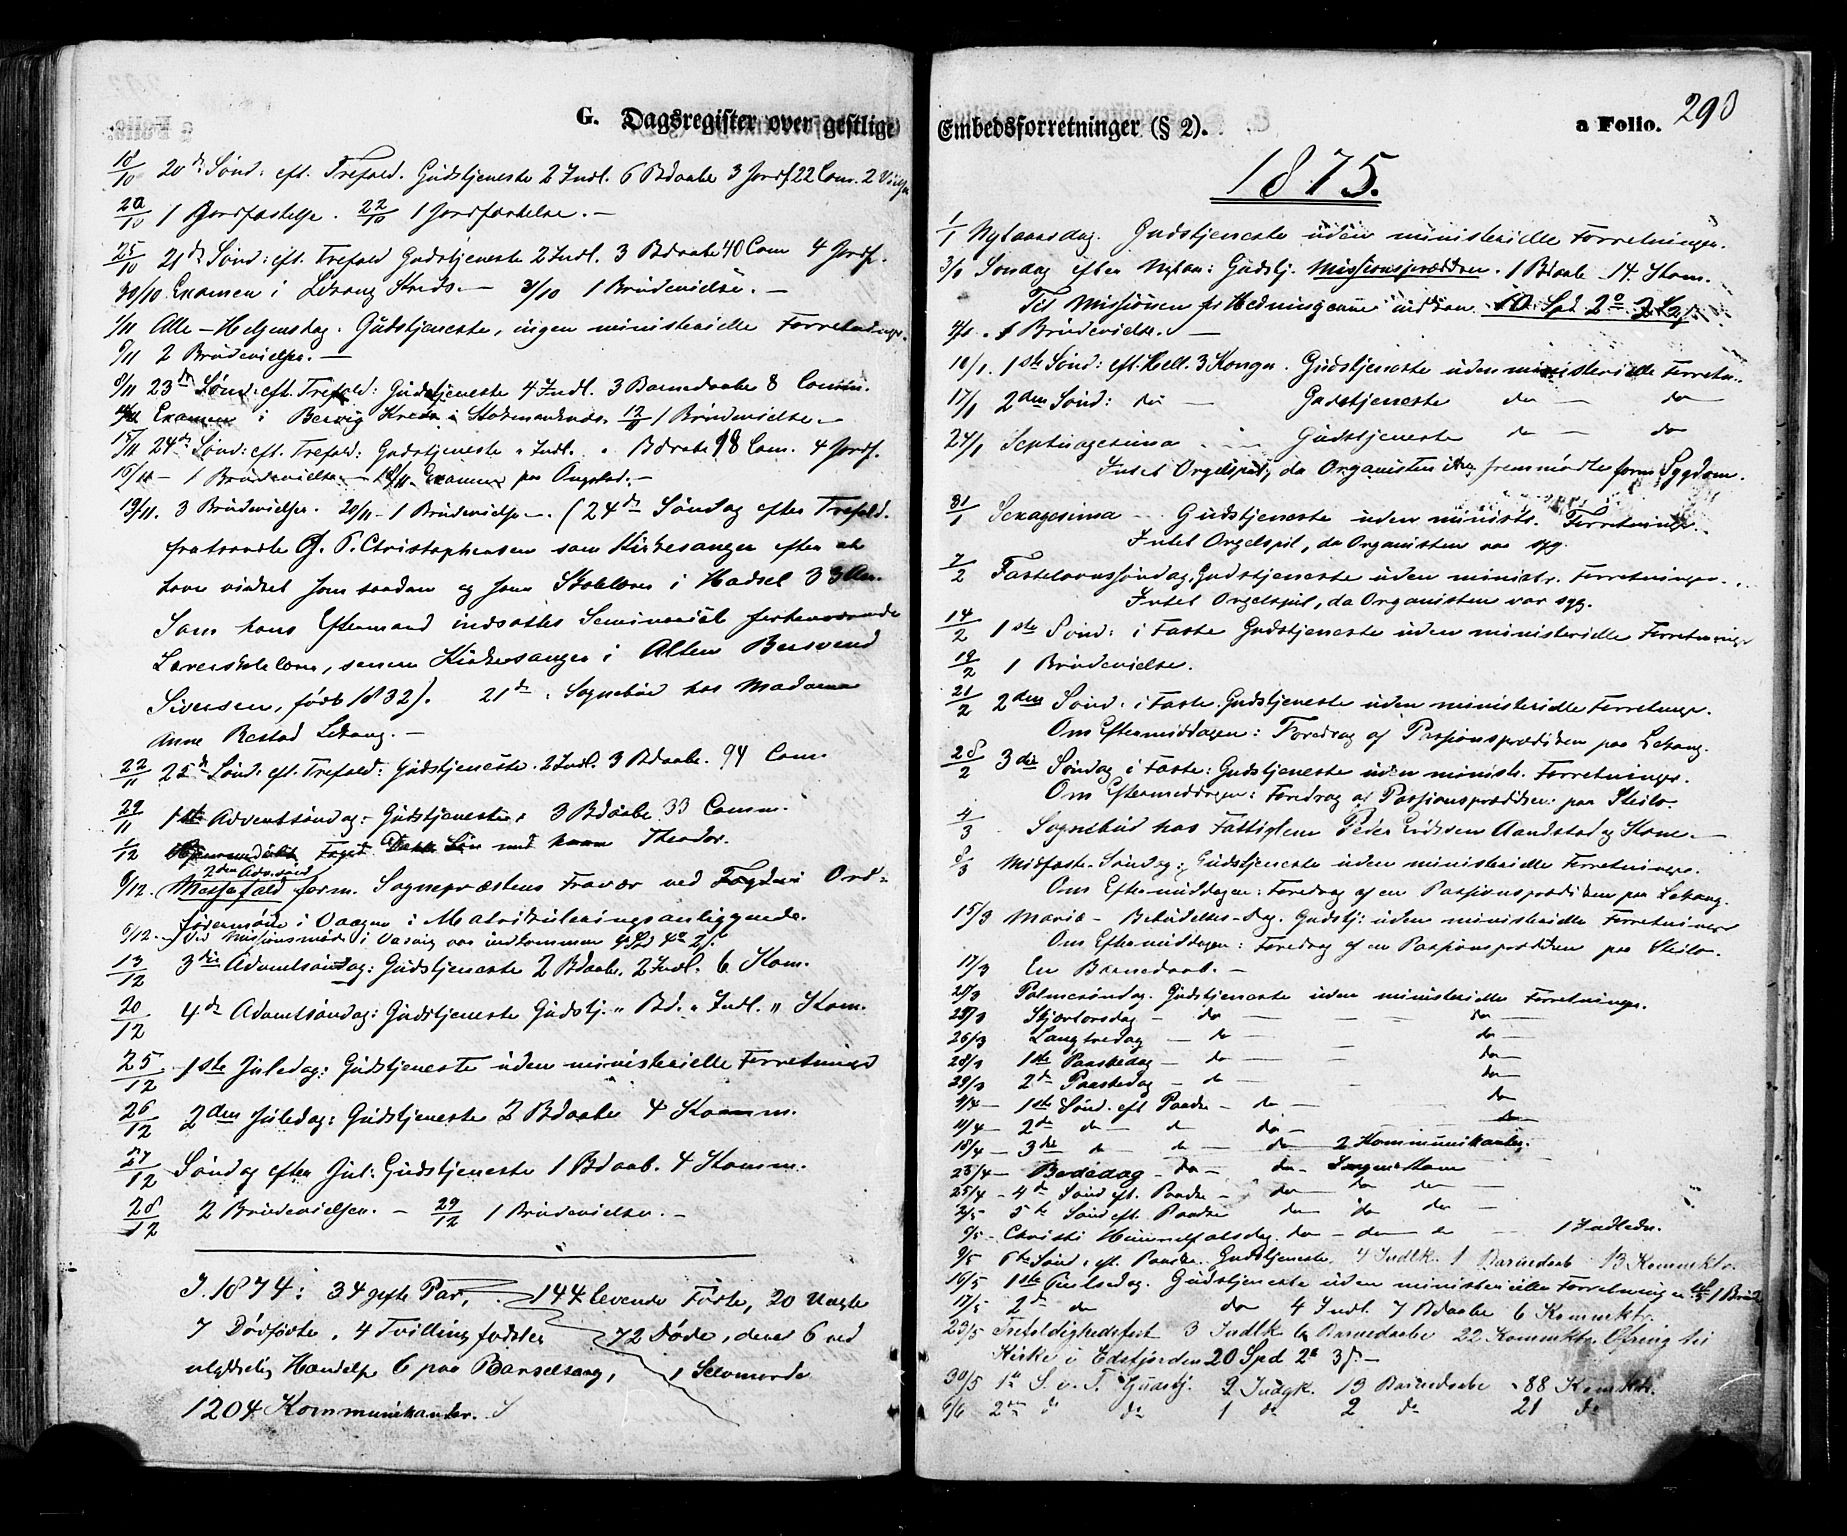 G. Dagsregister over gestlige
18/10 20de Sønd: eft. Trefold. Gudstjeneste 2 Indl. 6 Bdaabe 3 Jordf 22 Com. 2
20/10 1 Jordfæstelse. 22/10 1 Jordfæstelse. —
25/10 21de Sønd: eft. Trefold Gudstjeneste 2 Indl. 3 Bdaabe 40 Com 4 Jordf.
30/10 Examen i Lekang Kreds. — 1 Brudevielse. —
1/11 Alle-Helgensdag. Gudstjeneste, ingen ministerielle Forretninger.
2 Brudevielser. —
8/11 23de Sønd: eft. Trefold: Gudstjeneste 4 Indl. 3 Barnedaabe 8 Comm.
Examen i Kreds 12/11 1 Brudevielse —
15/11 24de Sønd: eft. Trefold: Gudstjeneste " Indl. " Bdaabe 98 Com. 4 Jordf.
1 Brudevielse — 18/11 Examen paa
19/11. 3 Brudevielser. 20/11 - 1 Brudevielse —. (24de Søndag efter Trefold.
fratraadte O. P. Christophersen som Kirkesanger efter at
have virket som saadan og som Skolelærer i Hadsel 33 Aar.
Som hans Eftermand indsattes Seminarist forhenværende
Lærerskolelærer, senere Kirkesanger i Alten
Sivertsen, født 1832). 21de. Sognebud hos Madame
Anne Lekang. —
22/11 25de Sønd. eft. Trefold: Gudstjeneste. 2 Indl. 3 Bdaabe. 94 Com.
29/11 1ste Adventsøndag: Gudstjeneste. 3 Bdaabe 33 Comm.
/12 med Theodor.
2den Adv.sønd
6/12. Messefald form. Sognepræstens Fravær ved Ord-
førermøde i Vaagen i Matrikuleringsanliggende.
6/12. Ved Missionsmøde i var indkommen
13/12 3die Adventsøndag: Gudstjeneste 2 Bdaabe. 2 Indl. 6 Kom.
20/12 4de Adventsøndag: Gudstjeneste Gudstj. " Bd. " Indl. " Kom.
25/12 1ste Juledag: Gudstjeneste uden ministerielle Forretninger
26/12 2den Juledag: Gudstjeneste 2 Bdaabe 4 Komm.
27/12 Søndag efter Jul: Gudstjeneste 1 Bdaab. 4 Komm.
28/12 2 Brudevielser. — 29/12 1 Brudevielse. —
I 1874: 34 gifte Par, 144 levende Fødte, 20 Uægte
7 Dødfødte, 4 Tvillingfødsler 72 Døde, deraf 6 ved
ulykkelig Hændelse 6 paa Barselseng, 1 Selvmorder
1204 Kommunikanter.
Embedsforretninger (§ 2). a Folio. 293
1875.
1/1 Nytaarsdag. Gudstjeneste uden ministerielle Forretninger.
3/1 Søndag efter Nytaar: Gudstj. Missionsprædiken. 1 Bdaab - 14. Kom.
Til Missionen for Hedningerne indkom 10 Spd
1 Brudevielse. —
10/1. 1ste Sønd: eft. Hell. 3 Konger. Gudstjeneste uden ministerielle Forretn.
17/1 2den Sønd: do — Gudstjeneste do — do
24/1 Septuagesima Gudstjeneste do — do
Intet Orgelspil, da Organisten fremmødte form. Sygdom.
31/1 Sexagesima — Gudstjeneste uden ministr. Forretninger.
Intet Orgelspil, da Organisten var syg.
7/2 Fastelavnssøndag. Gudstjeneste uden ministr. Forretninger.
Intet Orgelspil, da Organisten var syg.
14/2 1ste Sønd: i Faste Gudstjeneste uden ministerielle Forretninger
19/2 1 Brudevielse.
21/2 2den Sønd: i Faste. Gudstjeneste uden ministerielle Forretninger.
Om Eftermiddagen: Foredrag af Passionsprædiken paa Lekang.
28/2 3die Søndag i Faste: Gudstjeneste uden ministr. Forretninger.
Om Eftermiddagen: Foredrag af Passionsprædiken: paa Steilo.
4/3 Sognebud hos Fattiglem Peder Eriksen Aandstad og Kone. —
Midfaste Søndag: Gudstjeneste uden ministerielle Forretninger.
Om Eftermiddagen: Foredrag af en Passionsprædiken paa Lekang.
15/3 Mariæ - Bebudelses-dag. Gudstj: uden ministerielle Forretninger
Om Eftermiddagen: Foredrag af en Passionsprædiken paa Steilo.
17/3 En Barnedaab. —
Palmesøndag. Gudstjeneste uden ministerielle Forretninger.
Skjærtorsdag — do — — do
26/3 Langfredag — do — — do
28/3 1ste Paaskedag — do — — do
29/3 2de Paaskedag — do — — do
4/4 — 1ste Sønd. eft Paaske — do — do
11/4 — 2de do do do — do
18/4 — 3die do — do — do 2 Kommunikanter.
23/4 — Bededag — do — do — Ingen Kom
25/4 — 4de Sønd eft. Paaske — do — do do —
2/5 5te Sønd eft. Paaske do — do do —
6/5 — Christi Himmelfartsdag. do — do — do — 1 Indledn.
9/5 6te Sønd. eft Paaske. Gudstjeneste 4 Indlk. 1 Barnedaab 13 Kommktr.
16/5 1ste Pintsedag. Gudstjeneste uden ministerielle Forretninger 1 Brud
17/5 2de do do 4 Indl 7 Bdaabe 6 Kommktr.
23/5 Trefoldighedsfest 3 Indlk 6 Barnedaabe 22 Kommktr. Ofring til
Kirke i Edsfjorden 20 Spd
30/5 1ste S. e. T. Gudstj. 2 Indgk. 13 Barnedaabe 88 Kommktr.
6/6 2den do do 1 do 2 do 21 do